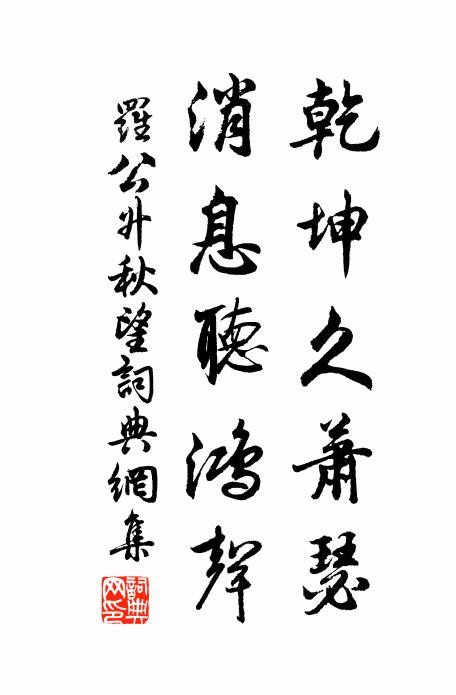 乾坤久蕭瑟
消息聽鴻聲
羅公升秋望詞典網集
詞典网印